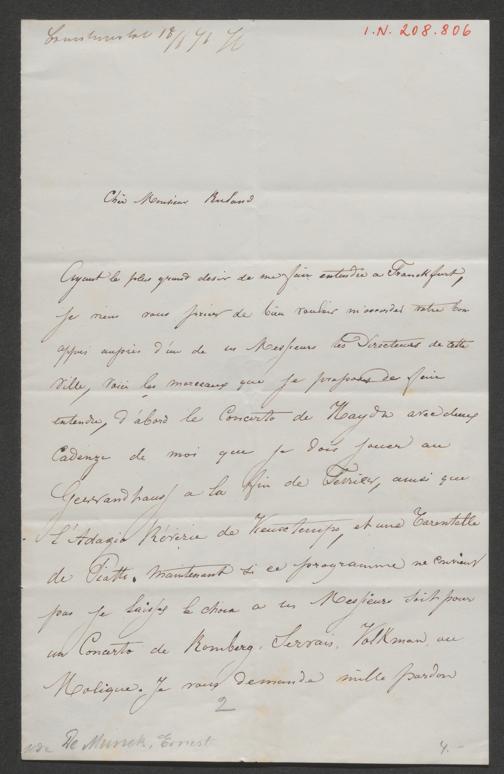 I.N. 208.806
Chèr Monsieur Ruland
Ayant le plus grand desir de me fair entendre a Franckfurt,
je viens vous prier de bien vouloir m'accorder votre bon
appui auprès d'un de ces Messieurs les Directeurs de cette
Ville, voici les morceaux que je propose de fair
entendre, d'abord le Concerto de Haydn avec deux
Cadenze de moi que je dois jouer au
Gewandhaus a la fin de Fevrier, ainsi que
l'Adagio Rêverie de Vieuxtemps, et une Tarentelle
de Piatti. Maintenant si ce programme ne convient
pas je laisse le choix a ces Messieurs soit pour
un Concerto de Romberg, Servais, Volkman, ou
Molique. Je vous demande mille pardon
2
De Munck, Ernest
4.-